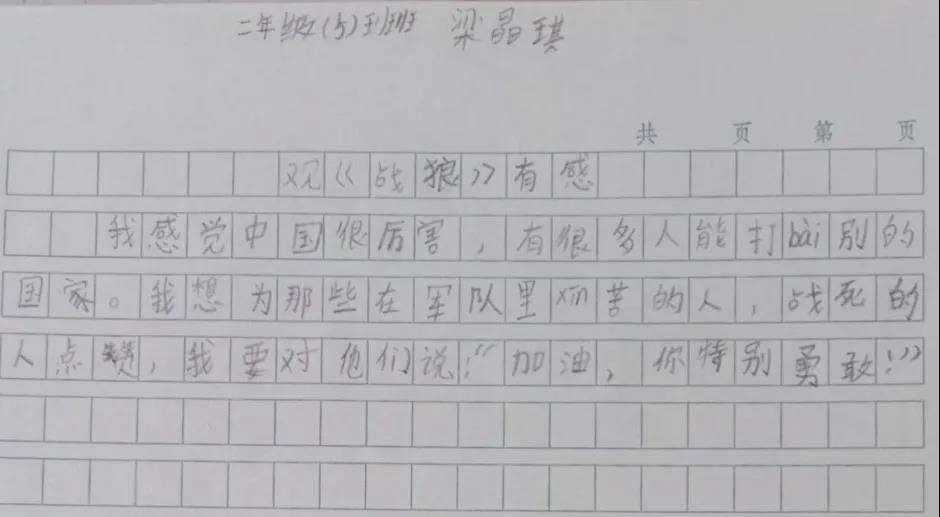 二年级(5)班班 梁晶琪
共 页 第 页
观《战狼》有感
我感觉中国很厉害，有很多人能打bài别的
国家。我想为那些在军队里xīn苦的人，战死的
人点赞，我要对他们说：“加油，你特别勇敢！”